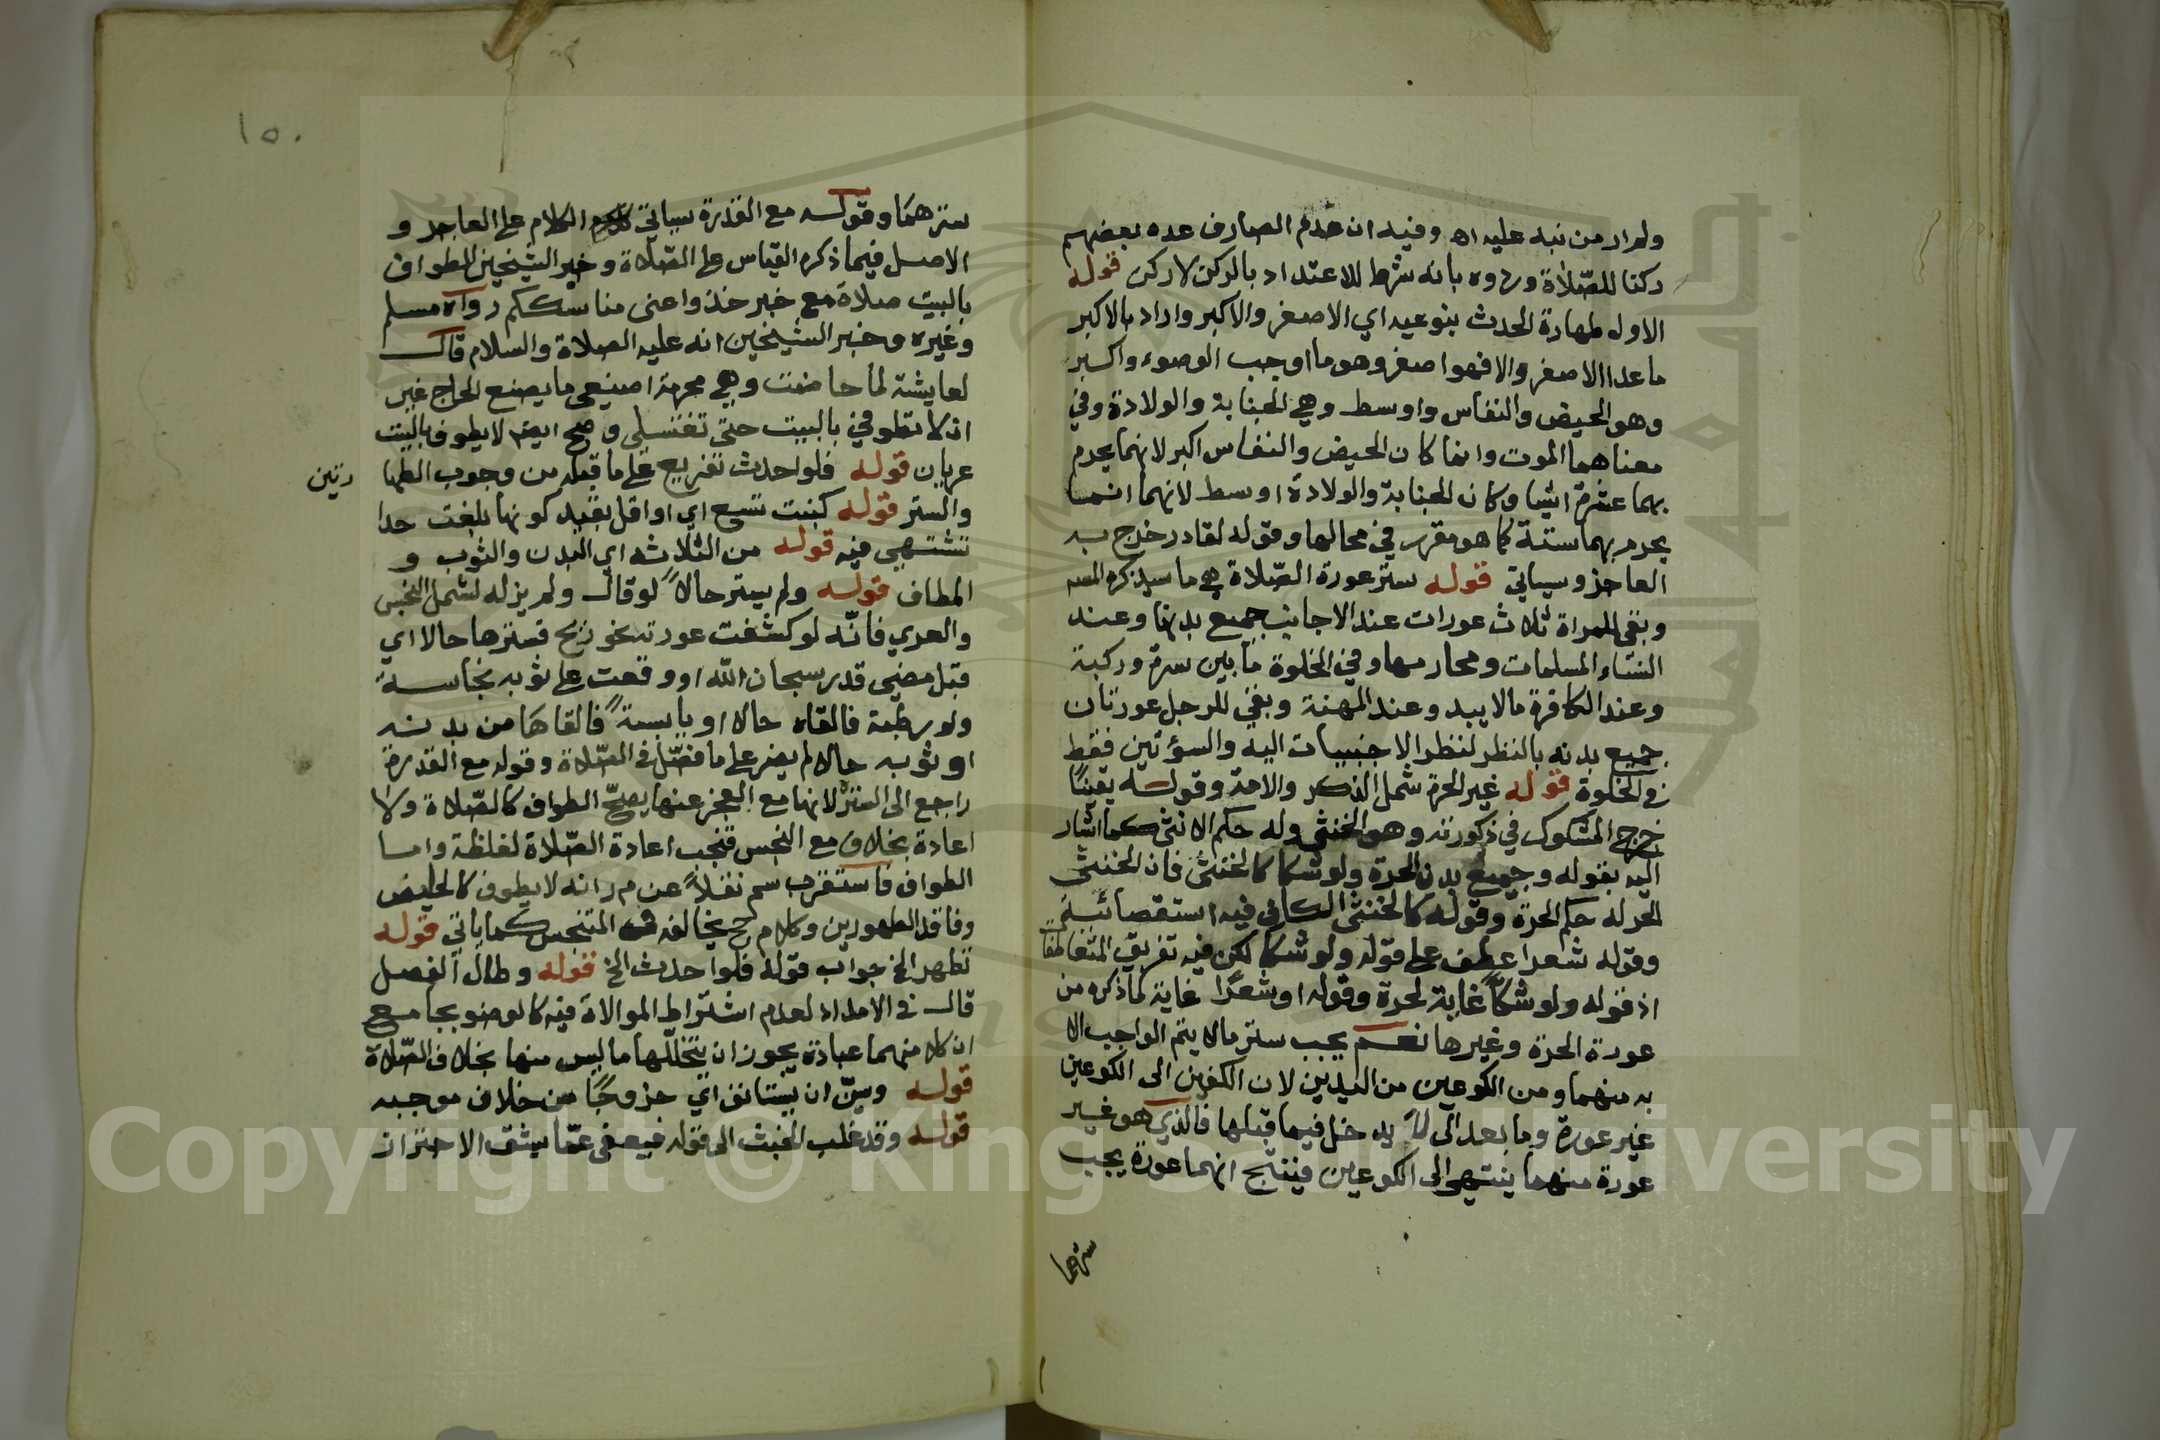 ولم ار من نبه عليه اه وفيه ان عدم الصارف عده بعضهم
ركنا للصلاة وردوه بانه شرط للاعتداد بالركن لا ركن قوله
الاول طهارة الحدث بنوعيه اي الاصغر والاكبر واراد بالاكبر
ما عدا الاصغر والا فهو اصغر وهو ما اوجب الوضوء واكبر
وهو الحيض والنفاس واوسط وهي الجنابة والولادة وفي
معناهما الموت وانما كان الحيض والنفاس اكبر لانهما يحرم
بهما عشرة اشيا وكان الجنابة والولادة اوسط لانهما انما
يحرم بهما ستة كما هو مقرر في محالها وقوله لقادر خرج به
العاجز وسياتي قوله ستر عورة الصلاة هي ما سيذكره المص
وبقي للمراة ثلاث عورات عند الاجانب جميع بدنها وعند
النساء المسلمات ومحارمها وفي الخلوة ما بين سرة وركبة
وعند الكافرة ما لا يبد وعند المهنة وبقي للرجل عورتان
جميع بدنه بالنظر لنظر الاجنبيات اليه والسؤتين فقط
في الخلوة قوله غير الحرة شمل الذكر والامة وقوله يقينًا
خرج المشكوك في ذكورته وهو الخنثى وله حكم الانثى كما اشار
اليه بقوله وجميع بدن الحرة ولو شكا كالخنثى فان الخنثى
الحر له حكم الحرة وقوله كالخنثى الكاف فيه استقصائية
وقوله شعرا عطف على قوله ولو شكا لكن فيه تفريق المتعاطفات
اذ قوله ولو شكًا غاية لحرة وقوله او شعرًا غاية لما ذكره من
عورة الحرة وغيرها نعم يجب ستر ما لا يتم الواجب الا
به منهما ومن الكوعين من اليدين لان الكفين الى الكوعين
غير عورة وما بعد الى لا يدخل فيما قبلها فالذي هو غير
عورة منهما ينتهي الى الكوعين فينتج انهما عورة يجب
سترهما
١٥٠
سترهما وقوله مع القدرة سياتي الكلام على العاجز و
الاصل فيما ذكره القياس على الصلاة وخبر الشيخين الطواف
بالبيت صلاة مع خبر خذوا عني مناسككم رواه مسلم
وغيره وخبر الشيخين انه عليه الصلاة والسلام قال
لعايشة لما حاضت وهي محرمة اصنعي ما يصنع الحاج غير
ان لا تطوفي بالبيت حتى تغتسلي وصح ايضا لا يطوف بالبيت
عريان قوله فلو احدث تفريع على ما قبله من وجوب الطها
رتين
والستر قوله كبنت تسع اي او اقل بقيد كونها بلغت حدا
تشتهى فيه قوله من الثلاثه اي البدن والثوب و
المطاف قوله ولم يستر حالاً لو قال ولم يزله لشمل النجس
والعري فانه لو كشفت عورته نحو ريح فسترها حالا اي
قبل مضي قدر سبحان الله او وقعت على ثوبه نجاسة
ولو رطبة فالقاه حالا او يابسةً فالقاها من بدنه
او ثوبه حالا لم يضر على ما فصل في الصلاة وقوله مع القدرة
راجع الى الستر لانها مع العجز عنها يصح الطواف كالصلاة ولا
اعادة بخلاف مع النجس فتجب اعادة الصلاة لغلظة واما
الطواف فاستقرب سم نقلاً عن م ر انه لا يطوف كالحايض
وفاقد الطهورين وكلام حج يخالفه في المتنجس كما ياتي قوله
تطهر الخ جواب قوله فلو احدث الخ قوله وطال الفصل
قال في الامداد لعدم اشتراط الموالاة فيه كالوضو بجامع
ان كلا منهما عبادة يجوز ان يتخللها ما ليس منها بخلاف الصلاة
قوله وسن ان يستانف اي خروجًا من خلاف موجبه
قوله وقد غلب الخبث الى قوله فيعفى عما يشق الاحتراز
Copyright © King Saud University